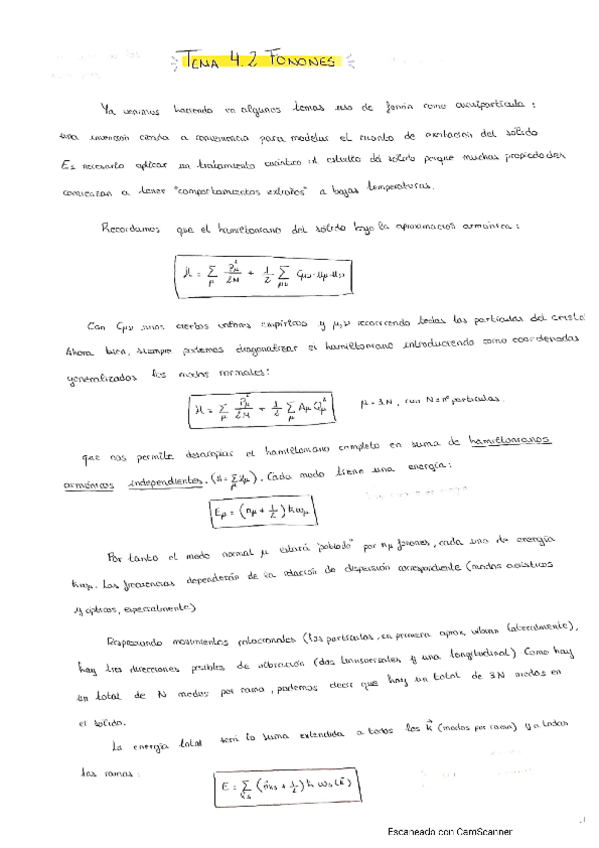 TEMA 4.2 FONONES
Ya venimos haciendo en algunos temas uso de fonón como cuasipartícula:
una invención creada a conveniencia para modelar el cuanto de excitación del sólido
Es necesario aplicar un tratamiento cuántico al estudio del sólido porque muchas propiedades
comienzan a tener "comportamientos extraños" a bajas temperaturas.
Recordamos que el hamiltoniano del sólido bajo la aproximación armónica:
H = Σ_μ P_μ²/2M + 1/2 Σ_μν C_μν · u_μ · u_ν
Con C_μν unos ciertos valores empíricos y μ, ν recorriendo todas las partículas del crista
Ahora bien, siempre podemos diagonalizar el hamiltoniano introduciendo como coordenadas
generalizadas los modos normales:
H = Σ_μ P_μ²/2M + 1/2 Σ_μ A_μ Q_μ² μ = 3N, con N = nº partículas.
que nos permite desacoplar el hamiltoniano completo en suma de hamiltonianos
armónicos independientes. (H = Σ_μ H_μ). Cada modo tiene una energía:
E_μ = (n_μ + 1/2) ħω_μ
Por tanto el modo normal μ estará "poblado" por n_μ fonones, cada uno de energía
ħω_μ. Las frecuencias dependerán de la relación de dispersión correspondiente (modos acústicos
y ópticos, especialmente)
movimientos rotacionales (las partículas, en primera aprox, vibran lateralmente),
hay tres direcciones posibles de vibración (dos transversales y una longitudinal) Como hay
un total de N modos por rama, podemos decir que hay un total de 3N modos en
el sólido.
La energía total será la suma extendida a todos los k⃗ (modos por rama) y a todas
las ramas:
E = Σ (n_ks + 1/2) ħ ω_s(k⃗)
Escaneado con CamScanner